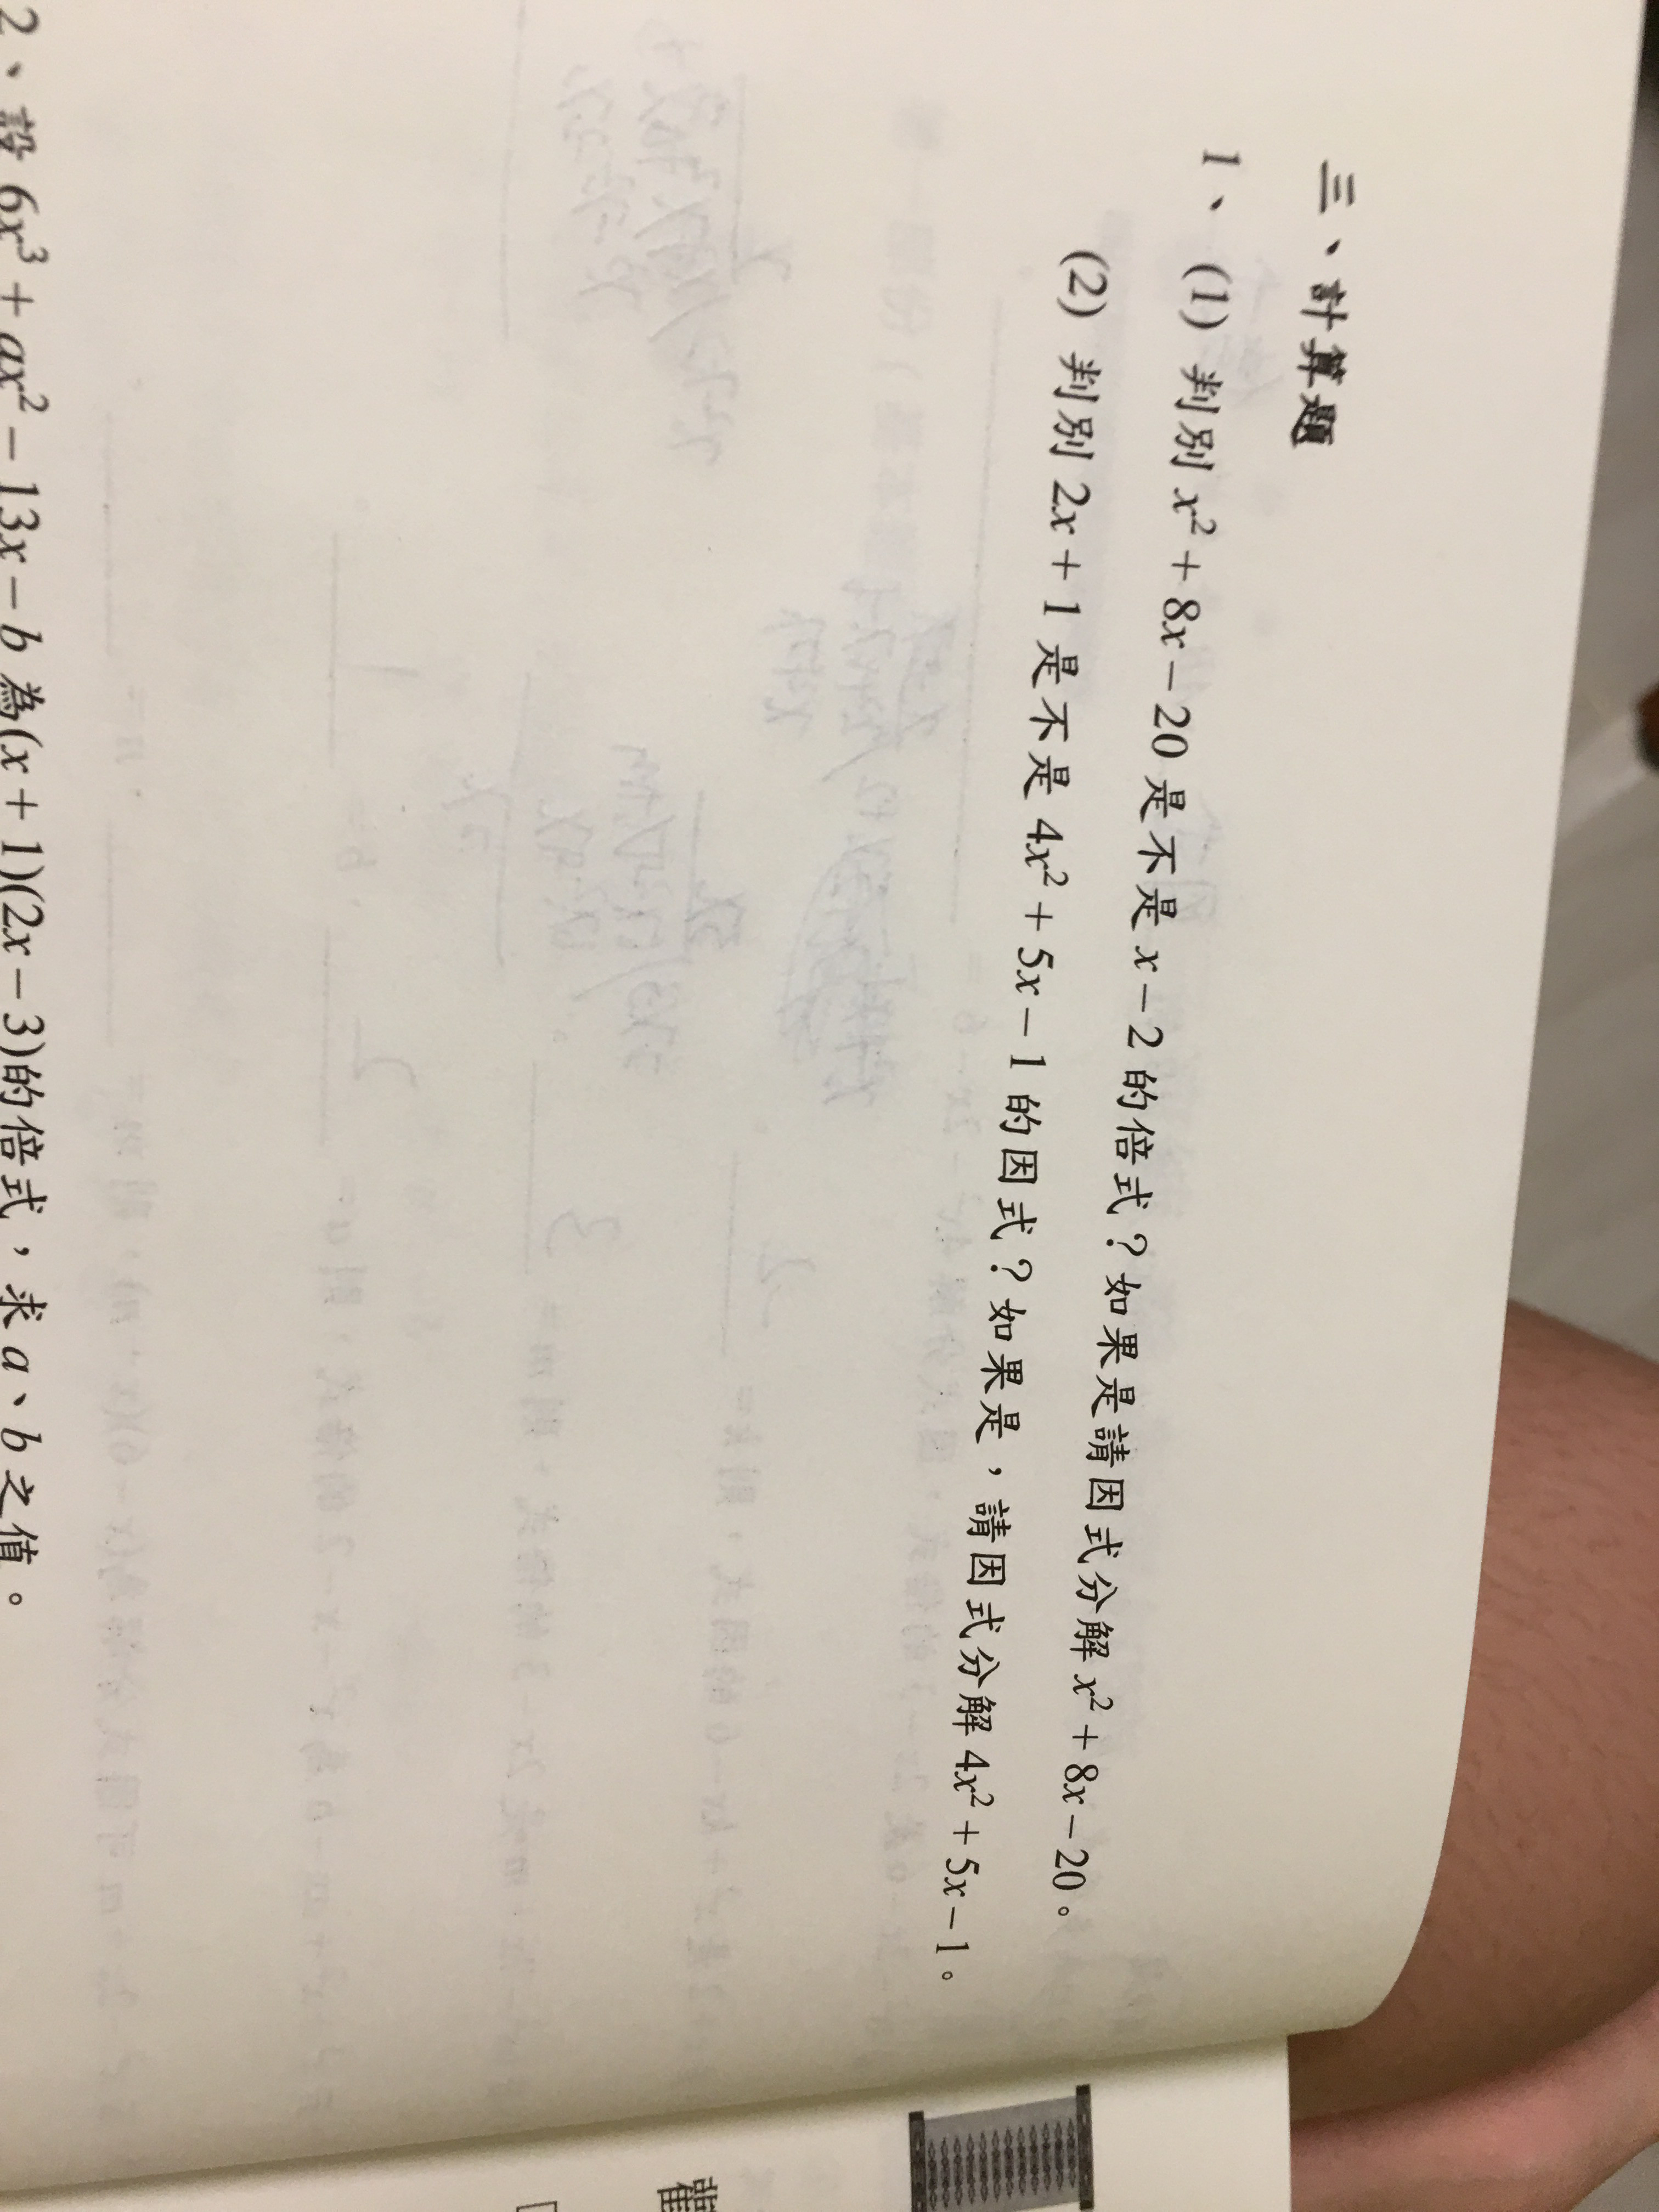 三、計算題
1、(1) 判別 x² + 8x − 20 是不是 x − 2 的倍式？如果是請因式分解 x² + 8x − 20。
(2) 判別 2x + 1 是不是 4x² + 5x − 1 的因式？如果是，請因式分解 4x² + 5x − 1。
2、設 6x³ + ax² − 13x − b 為(x + 1)(2x − 3)的倍式，求 a、b 之值。